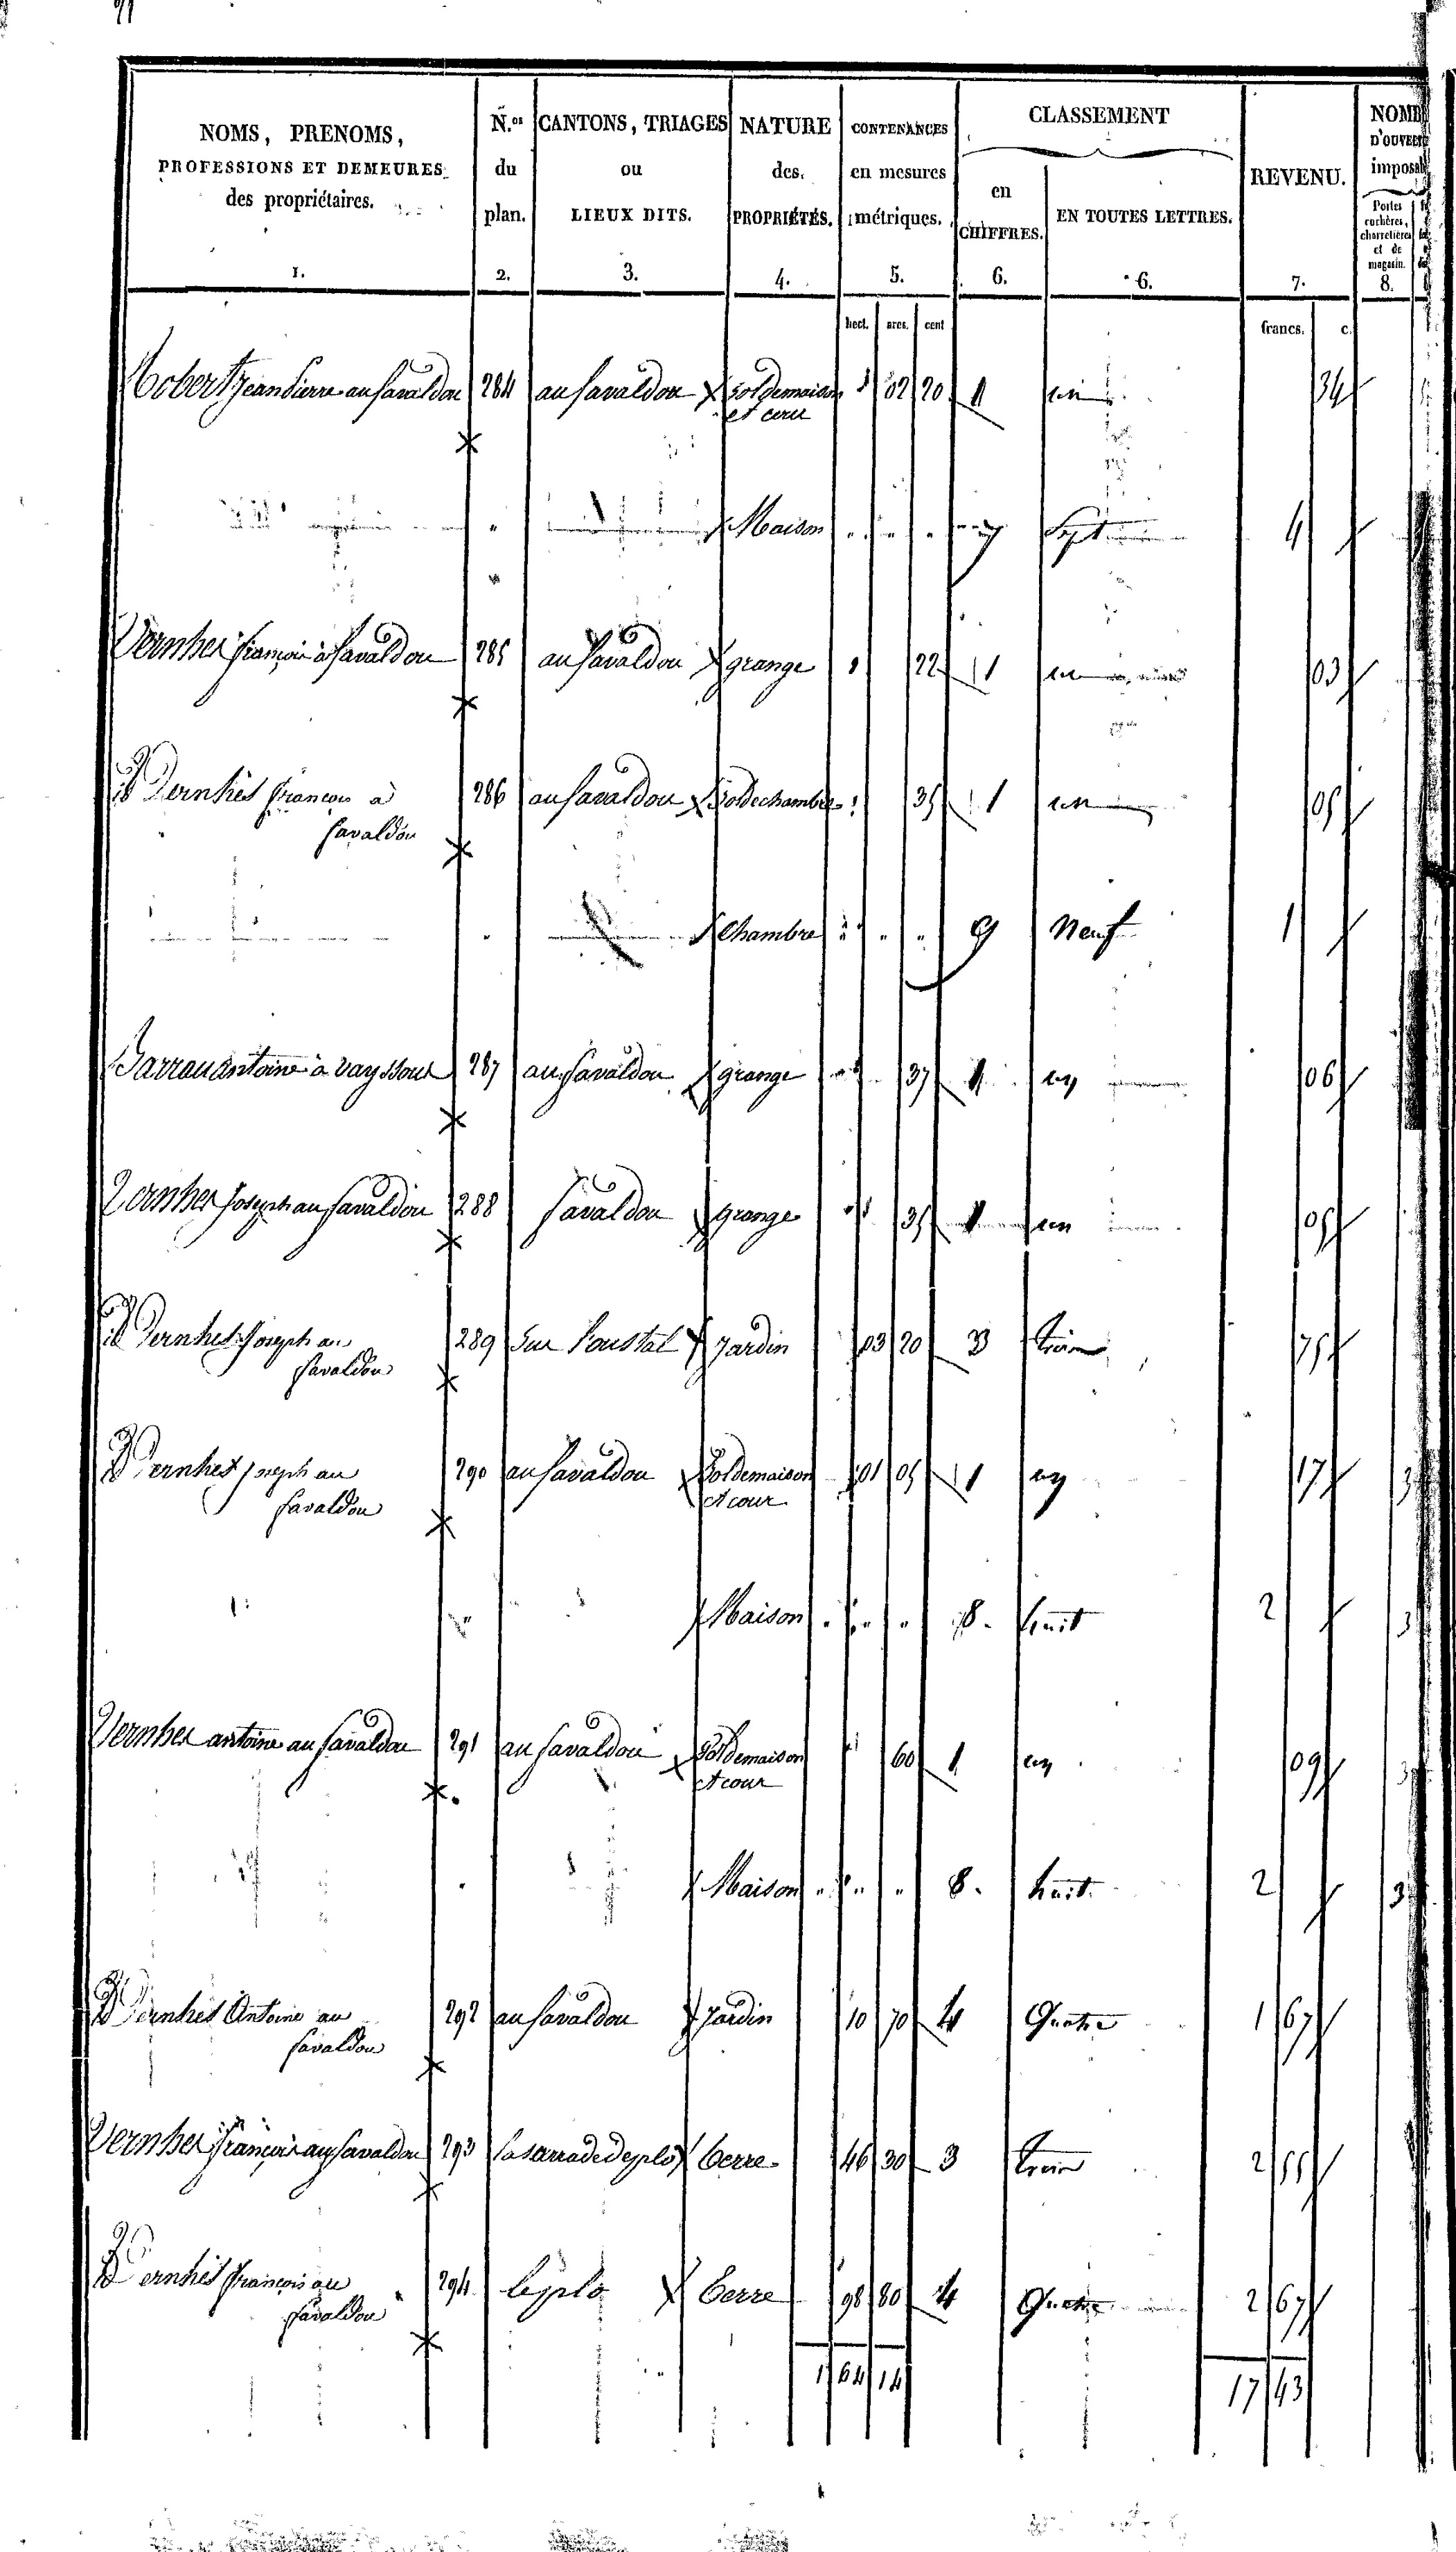 NOMS, PRENOMS,
PROFESSIONS ET DEMEURES
des propriétaires.
1.
N.os
du
plan.
2.
CANTONS, TRIAGES
ou
LIEUX DITS.
3.
NATURE
des
PROPRIÉTÉS.
4.
CONTENANCES
en mesures
métriques.
5.
CLASSEMENT
en
CHIFFRES.
6.
EN TOUTES LETTRES.
6.
REVENU.
7.
NOMB
D'OUVERT
imposab
Portes
cochères,
charretières
et de
magasin.
8.
hect. ares. cent francs. c.
jean Pierre au favaldou 284 au favaldou Sol de maison 02 20 1 un 34
et cour
Maison 7 Sept 4
Vernhes françois à favaldou 285 au favaldou grange 22 1 un 03
Vernhes françois a 286 au favaldou Sol de chambre 35 1 un 05
favaldou
Chambre 9 Neuf 1
antoine à vayssous 287 au favaldou grange 37 1 un 06
Vernhes joseph au favaldou 288 favaldou grange 35 1 un 05
Vernhes joseph au 289 Sur l'oustal jardin 03 20 3 trois 75
favaldou
Vernhes joseph au 290 au favaldou Sol de maison 01 05 1 un 17
favaldou et cour
Maison 8. huit 2 3
Vernhes antoine au favaldou 291 au favaldou Sol de maison 60 1 un 09
et cour
Maison 8. huit 2 3
Vernhes Antoine au 292 au favaldou Jardin 10 70 4 Quatre 1 67
favaldou
Vernhes françois au favaldou 293 terre 46 30 3 trois 2 55
Vernhes françois au 294 terre 98 80 4 Quatre 2 67
favaldou
1 64 14 17 43